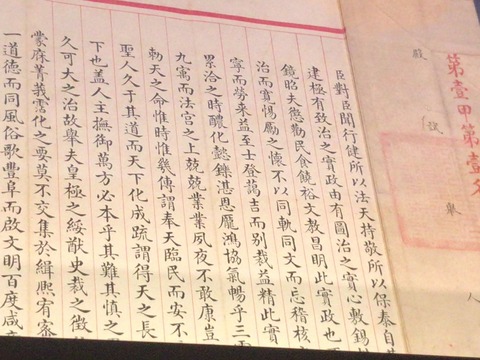 第壹甲第壹名
殿
號
舉
人
臣對臣聞行健所以法天持敬所以保泰自
建極有致治之實政由有圖治之實心敷錫
鏡昭夫懲勸民食饒裕文教昌明此實政也
治而實惕勵之懷不以同軌同文而忘稽核
寧而勞來益至士登藹吉而別裁益精此實
累洽之時醲化懿鑠湛恩厖鴻協氣暢乎三
九寓而法宮之上兢兢業業夙夜不敢康豈
勑天之命惟時惟幾傳謂奉天臨民而安不
聖人久于其道而天下化成疏謂得天之長
下也蓋人主撫御萬方必本乎其難其慎之
久可大之治故舉夫皇極之綏猷史裁之徵
蒙庥菁莪霑化之要莫不交集於緝熙宥密
一道德而同風俗歌豐阜而啟文明百度咸